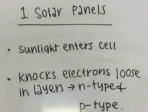 1 Solar Panels
• Sunlight enters cell
• Knocks electrons loose
in layers → n-type &
p-type.